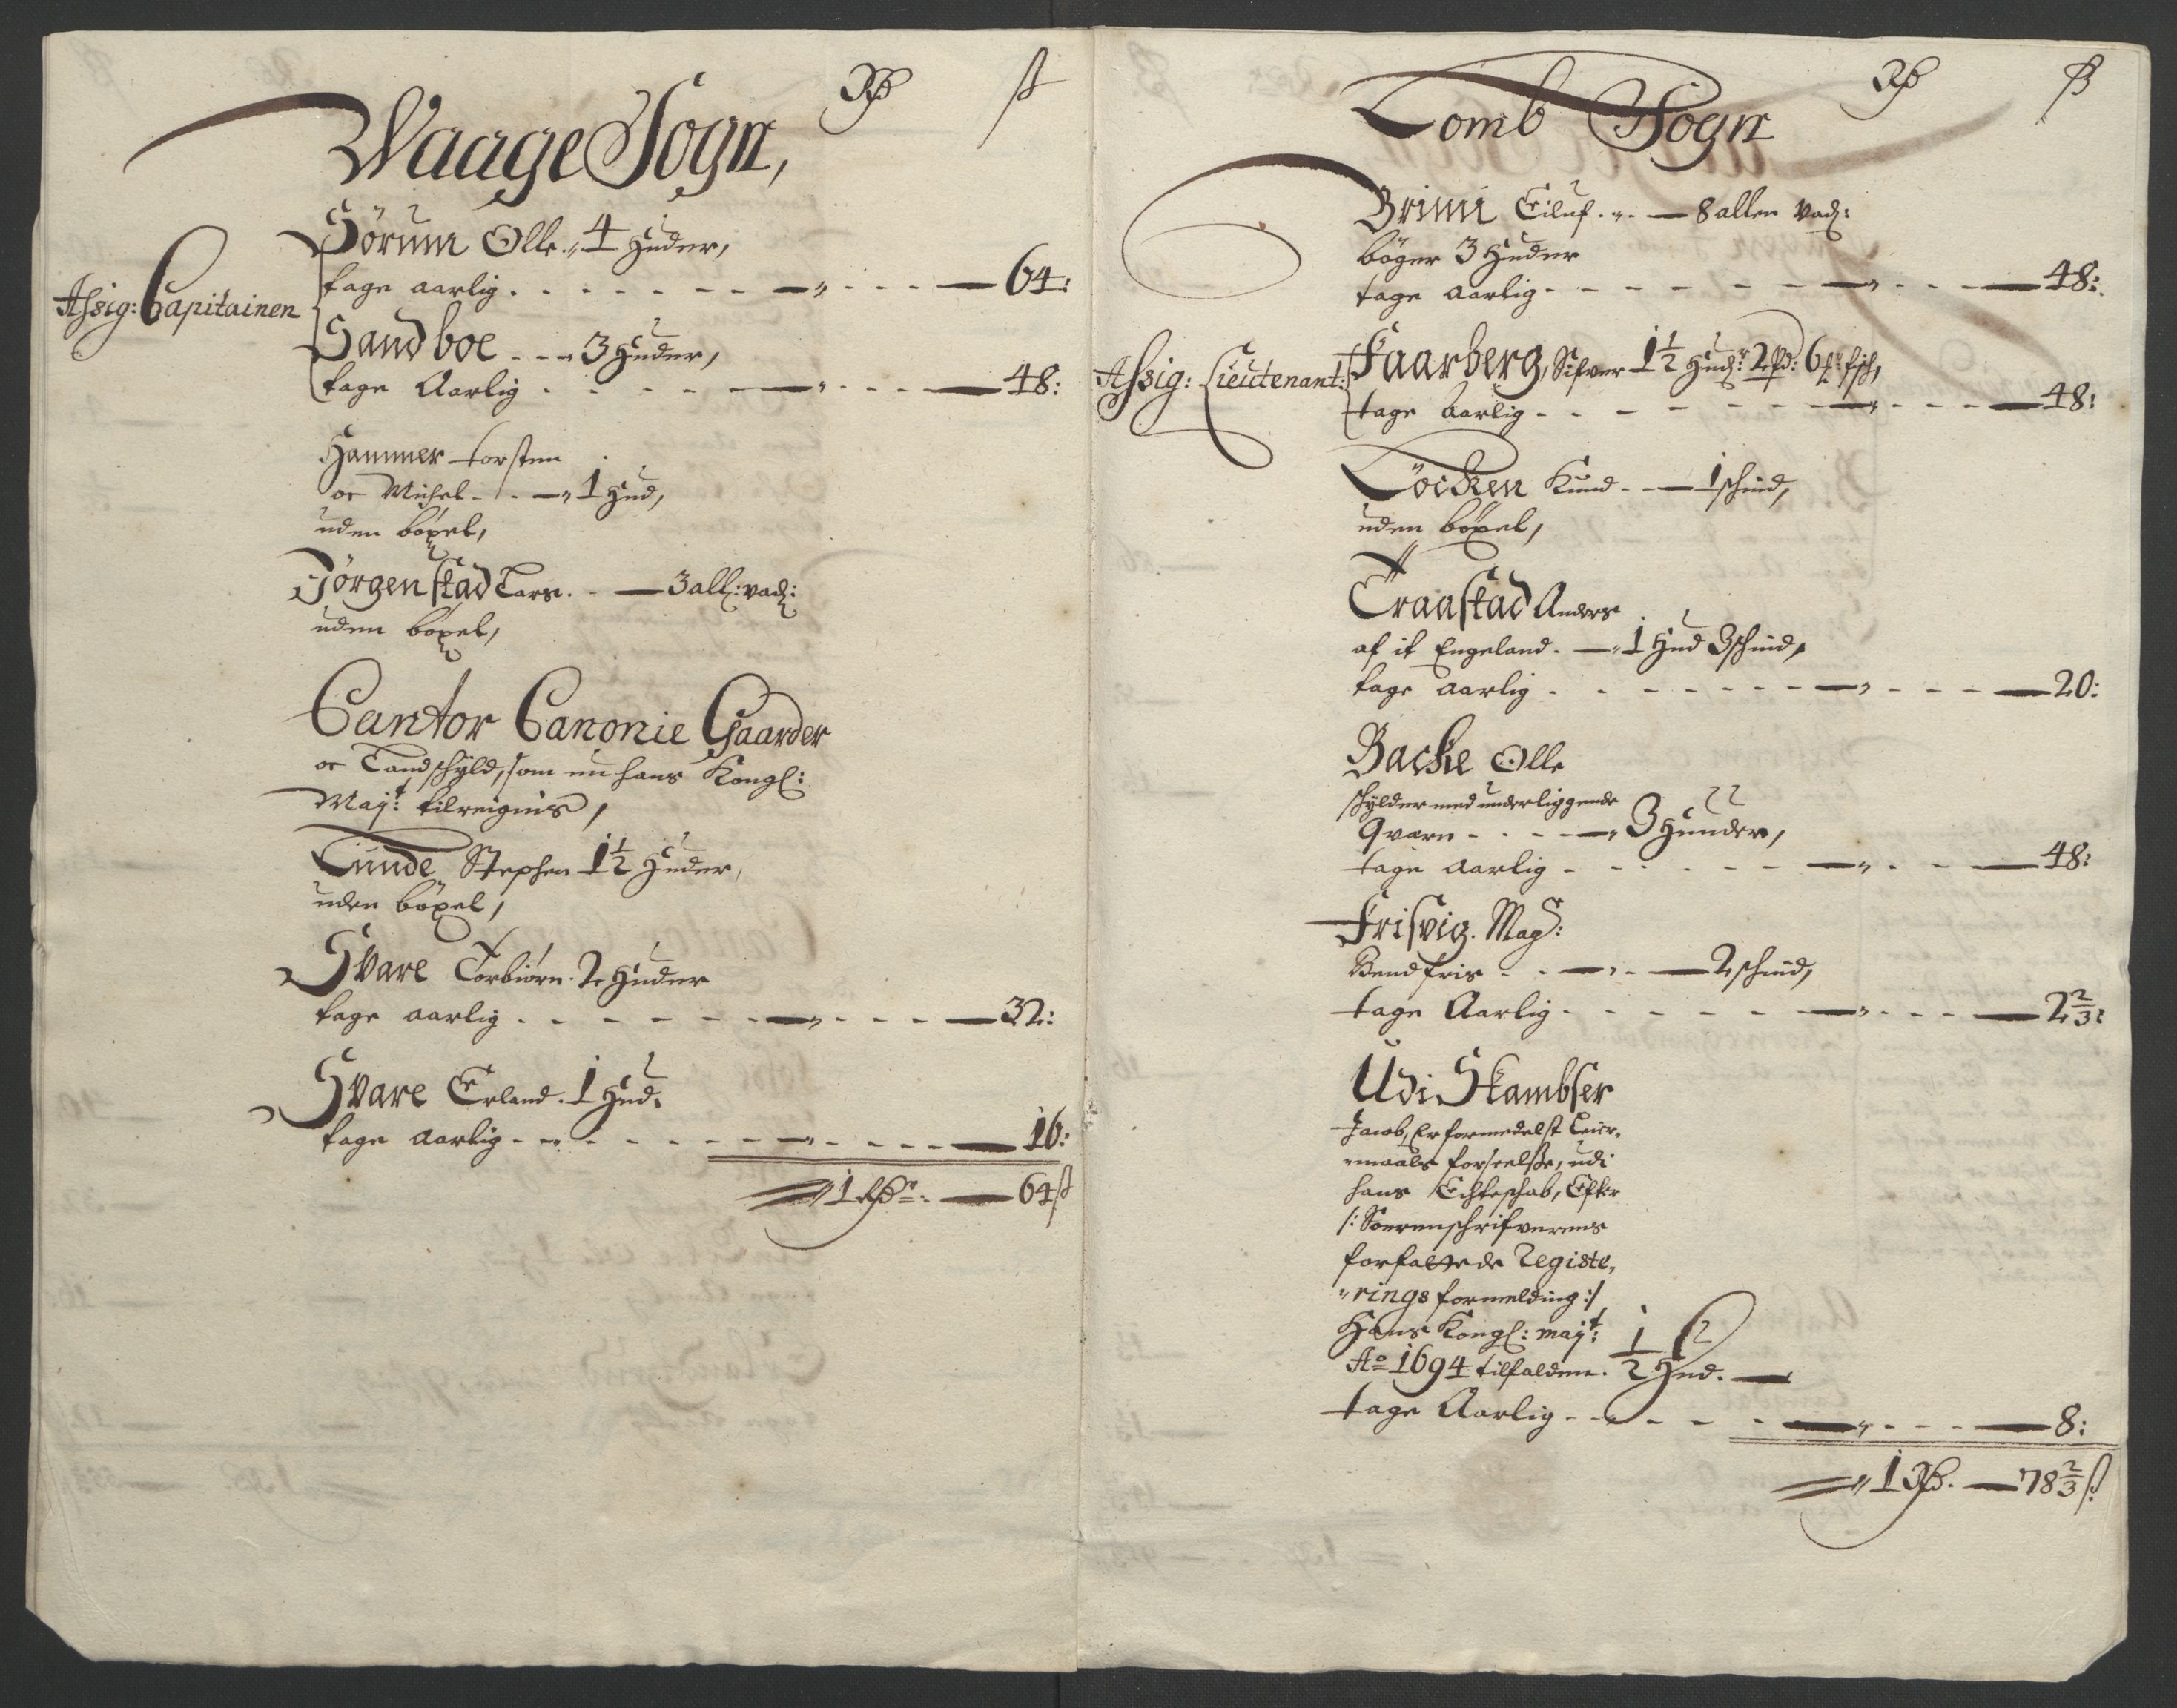 Rdr ß
Waage Sogn,
Sörum Olle „ 4 Huder,
tage aarlig . . . . . — „ . . . — 64:
Assig: Capitainen
Sandboe . . . 3 Huder,
tage Aarlig . . . . . — „ . . . — 48:
Hammer Torsten
oc Michel - - — „ 1 Hud,
uden böxel,
Jörgenstad Lars . - — 3 all: vad:
uden böxel,
Cantor Canonie Gaarder
oc Landschyld, som nu hans Kongl:
Mayt: tilreignis,
Sunde Stephen 1½ Huder,
uden böxel,
Svare Torbiörn . 2 Huder
tage aarlig . . . . . — „ . . . — 32:
Svare Erland . 1 Hud.
tage aarlig . . . . . — „ . . . — 16:
„ 1 Rdr: — 64 ß
Rdr ß
Lomb Sogn
Brimi Eiluf . „ . — 8 allen vad:
böger 3 Huder
tage aarlig - - - - - — „ - - - — 48:
Assig: Lieutenant:
Faarberg, Sifver 1½ Hudr 2 Pd: 6 fisch,
tage aarlig - - - - - — „ - - - — 48:
Löcken Knud - - — 1 schind,
uden böxel,
Traastad Anders
af it Engeland . — „ 1 Hud 3 schind,
tage aarlig - - - - - — „ - - - — 20:
Backe Olle
schylder med underliggende
Qværn - - - — „ 3 Hunder,
tage aarlig - - - - - — „ - - - — 48:
Frisvig . Mag:
Bendfris - - — „ - — 2 schind,
tage Aarlig - - - - - — „ - - - — 2⅔:
Udi Skambser
Jacob, Er formedelst Leier-
„maals forseelse, udi
hans Echteschab, Efter
/: Sorenschrifverens
forfattede Registe,
„rings formelding :/
Hans Kongl: Mayt:
Ao 1694 tilfalden . ½ Hud . —
tage Aarlig - - - - - — „ - - - — 8:
„ 1 Rdr . — 78⅔ ß